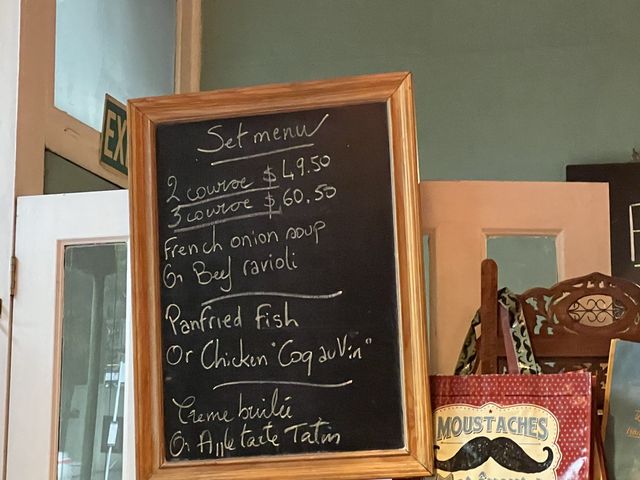 EXI
Set menu
2 course $ 49.50
3 course $ 60.50
French onion soup
Or Beef ravioli
Panfried fish
Or Chicken "Coq au Vin"
Creme brulée
Or Apple tarte Tatin
MOUSTACHES